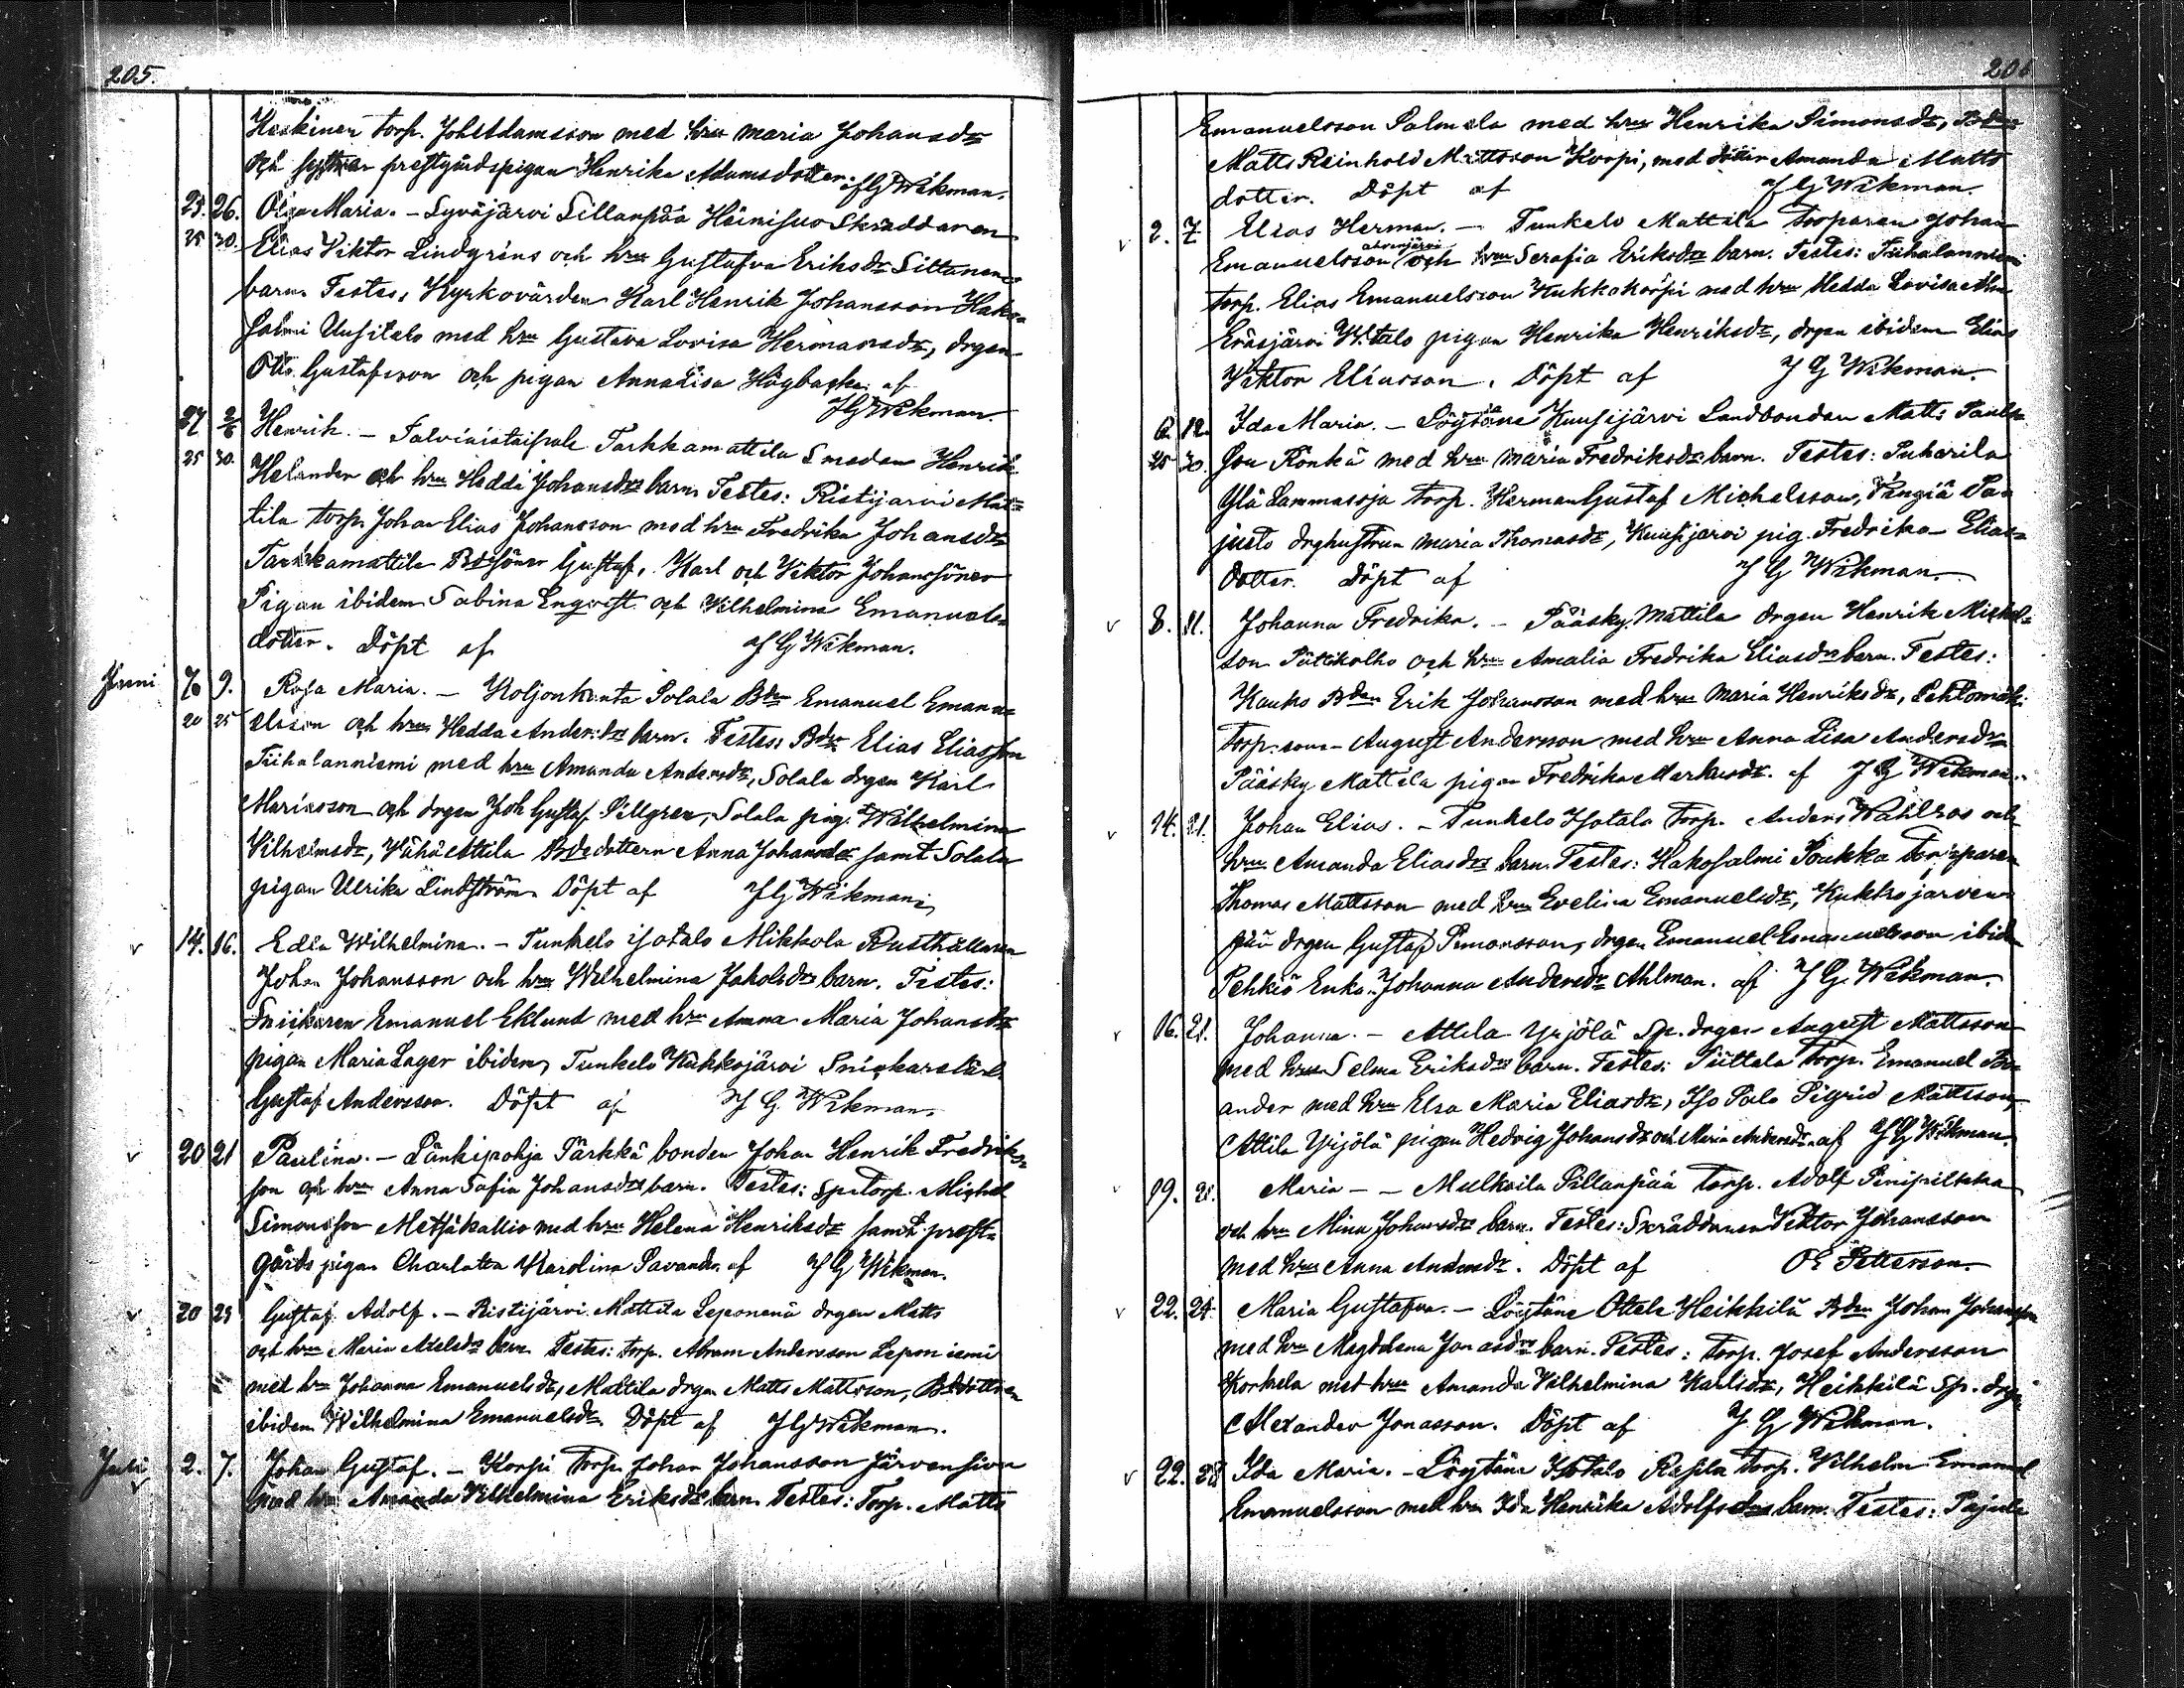 205.
Keskinen torp. Joh Adamsson med hru Maria Johansdr
och systrar prestgårdspigan Henrika Adamsdotter. af JG Wikman.
25. 26. Olga Maria. – Syväjärvi Sillanpää Heinisuo Skräddaren
25 30. Elias Viktor Lindgrens och hru Gustafva Eriksdr Siltanens
barn. Testes: Kyrkovärden Karl Henrik Johansson Hako=
salmi Uusitalo med hru Gustava Lovisa Hermansdr, drgen
Otto Gustafsson och pigan Anna Lisa Högbacka af
JG Wikman
27 2/6 Henrik. – Talviaistaipale Tarkkamattila Smeden Henrik
25 30. Helander och hru Hedda Johansdrs barn. Testes: Ristijärvi Mat=
tila torp. Johan Elias Johansson med hru Fredrika Johansdr
Tarkkamattila Bdesöner Gustaf, Karl och Viktor Johanssöner
Pigan ibidem Sabina Engqvist och Vilhelmina Emanuels=
dotter. Döpt af JG Wikman.
Juni 7/6 9. Rosa Maria. – Koljonkanta Solala Bdn Emanuel Emanu=
20 25 elsson och hrus Hedda Anders:drs barn. Testes: Bdn Elias Eliasson
Tiihalanniemi med hru Amanda Andersdr, Solala drgen Karl
Mariasson och drgen Joh Gustaf Sillgren, Solala pig. Wilhelmina
Vilhelmsdr, Vähä Attila Bdedottern Anna Johansdr samt Solala
pigan Ulrika Lindström. Döpt af JG Wikman.
v 14. 16. Edla Wilhelmina. – Tunkelo isotalo Mikkola Rusthållaren
Johan Johansson och hru Wilhelmina Jakobsdrs barn. Testes:
Snickaren Emanuel Eklund med hru Anna Maria Johansdr
pigan Maria Lager ibidem, Tunkelo Kukkojärvi Snickarelärl.
Gustaf Andersson. Döpt af JG Wikman.
v 20 21 Paulina. – Länkipohja Pärkkä bonden Johan Henrik Fredriks=
son och hru Anna Sofia Johansdrs barn. Testes: Sp:torp. Michel
Simonsson Metsäkallio med hru Helena Henriksdr samt prest=
gårds pigan Charlotta Karolina Pavander. af JG Wikman.
v 20 23 Gustaf Adolf. – Ristijärvi Mattila Leponenä drgen Matts
och hru Maria Axelsdrs barn. Testes: torp. Abram Andersson Leponiemi
med hru Johanna Emanuelsdr, Mattila drgen Matts Mattsson, Bdottren
ibidem Wilhelmina Emanuelsdr. Döpt af JG Wikman.
Juli v 2. 7. Johan Gustaf. – Korpi torp. Johan Johansson Järvensivu
med hru Amanda Vilhelmina Eriksdrs barn. Testes: Torp. Matts
206
Emanuelsson Salmela med hru Henrika Simonsdr, Bdn
Matts Reinhold Mattsson Korpi, med dotter Amanda Matts
dotter. Döpt af JG Wikman.
v 2. 7. Elias Herman. – Tunkelo Mattila Torparen Johan
Emanuelsson ahvenjärvi och hru Serafia Eriksdrs barn. Testes: Tiihalanniemi
torp. Elias Emanuelsson Kukkokorpi med hru Hedda Lovisa
Eräsjärvi Y:talo pigan Henrika Henriksdr, drgen ibidem Elias
Viktor Eliasson. Döpt af JG Wikman.
6. 12. Ida Maria. – Löytäne Kuusijärvi Landbonden Matts Pauls=
25 30. son Rönkä med hru Maria Fredriksdrs barn. Testes: Puharila
Ylä Lammasoja torp. Herman Gustaf Michelsson, Vengiä Pa=
justo drghustrun Maria Thomasdr, Kuusijärvi pig. Fredrika Elias=
dotter. Döpt af JG Wikman.
v 8. 11. Johanna Fredrika. – Pääsky Mattila drgen Henrik Mickels=
son Pättikolho och hru Amalia Fredrika Eliasdrs barn. Testes:
Kauko Bden Erik Johansson med hru Maria Henriksdr, Lehtomäki
Torp:son August Andersson med hru Anna Lisa Andersdr
Pääsky Mattila pigan Fredrika Markusdr. af JG Wikman.
v 14. 21. Johan Elias. – Tunkelo Isotalo Torp. Anders Wahlros och
hru Amanda Eliasdrs barn. Testes: Hakosalmi Poukka Torparen
Thomas Mattsson med hru Evelina Emanuelsdr, Kukkojärven=
pää drgen Gustaf Simonsson, drgen Emanuel Emanuelsson ibidem
Pehkiö Enka. Johanna Andersdr Ahlman. af JG Wikman.
v 16. 21. Johanna. – Attila Yrjölä Sp. drgen August Mattsson
med hru Selma Eriksdrs barn. Testes: Piittala Torp. Emanuel
ander med hru Elsa Maria Eliasdr, Iso Palo Sigrid Mattsson,
Attila Yrjölä pigan Hedvig Johansdr och Maria Andersdr. af JG Wikman.
v 19. 21. Maria – – Mulkoila Sillanpää Torp. Adolf Pinipilkka
och hru Mina Johansdrs barn. Testes: Skräddaren Viktor Johansson
med hru Anna Andersdr. Döpt af OE Petterson.
v 22. 24. Maria Gustafva. – Löytäne Ottela Heikkilä Bden Johan Johansson
med hru Magdalena Jonasdrs barn. Testes: Torp. Josef Andersson
Korkela med hru Amanda Vilhelmina Karlsdr, Heikkilä Sp. drgen
Alexander Jonasson. Döpt af JG Wikman.
v 22. 28 Ida Maria. – Löytäne Isotalo Rasila Torp. Vilhelm Emanuel
Emanuelsson med hru Ida Henrika Adolfsdrs barn. Testes: Pajula